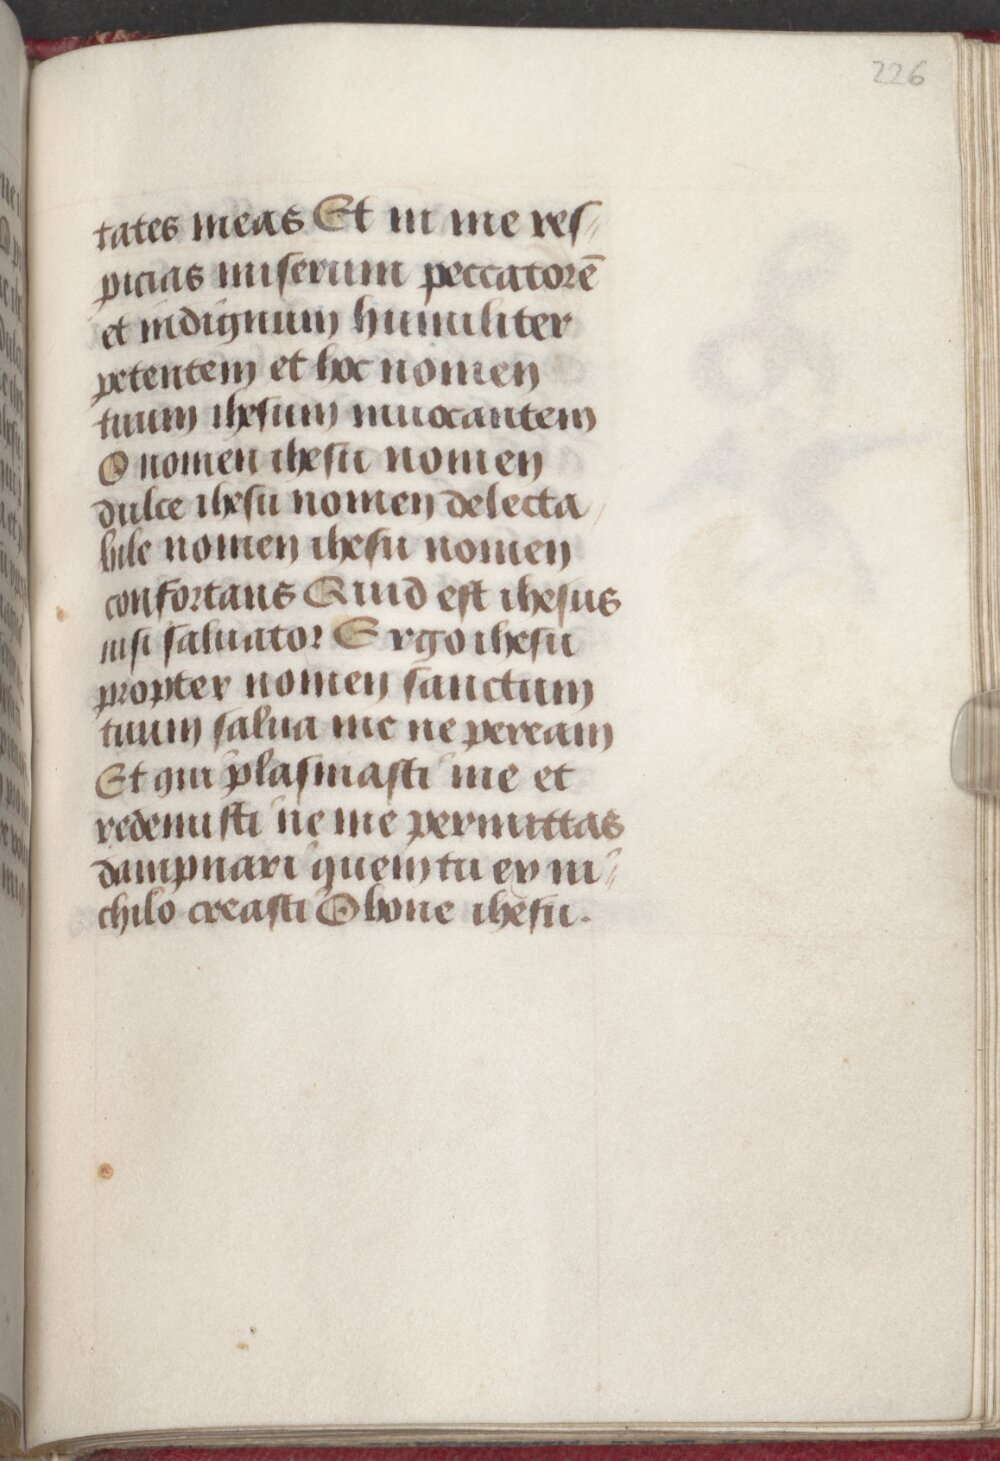 226
tates meas Et in me res-
picias miserum peccatorē
et indignum humiliter
petentem et hoc nomen
tuum ihesum inuocantem
O nomen ihesu nomen
dulce ihesu nomen delecta
bile nomen ihesu nomen
confortans Quid est ihesus
nisi saluator Ergo ihesu
propter nomen sanctum
tuum salua me ne peream
Et qui plasmasti me et
redemisti ne me permittas
dampnari quem tu ex ni-
chilo creasti O bone ihesu.